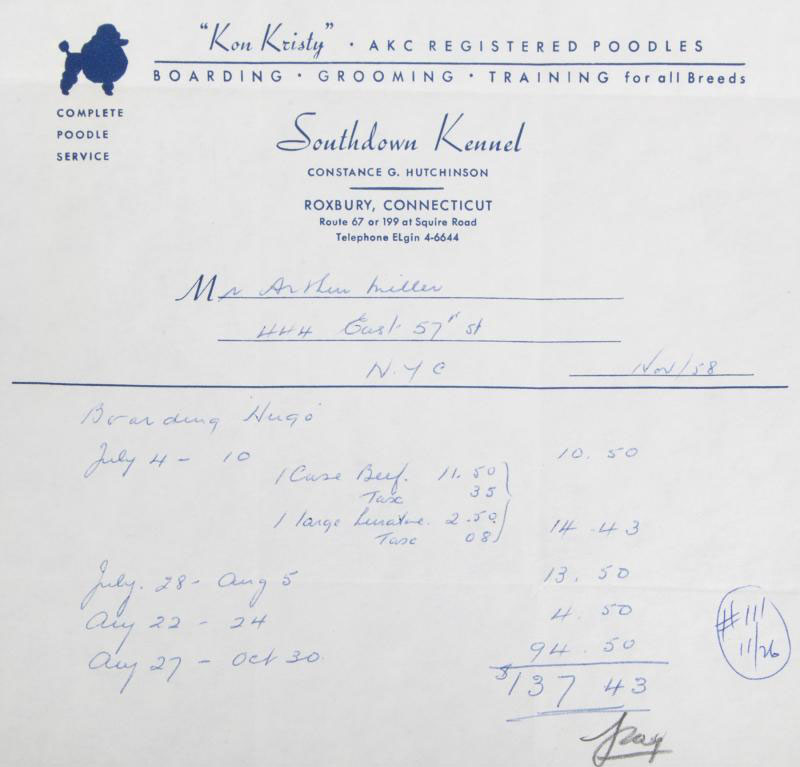 "Kon Kristy" · AKC REGISTERED POODLES
BOARDING · GROOMING · TRAINING for all Breeds
COMPLETE
POODLE
SERVICE
Southdown Kennel
CONSTANCE G. HUTCHINSON
ROXBURY, CONNECTICUT
Route 67 or 199 at Squire Road
Telephone ELgin 4-6644
Mr Arthur Miller
444 East 57th st
N.Y C Nov/58
Boarding Hugo
July 4 - 10 10.50
1 Case Beef. 11.50
Tax 35
1 large 2.50
Tax 08 14.43
July. 28 - Aug 5 13.50
Aug 22 - 24 4.50
Aug 27 - Oct 30 94.50
$137 43
#111
11/26